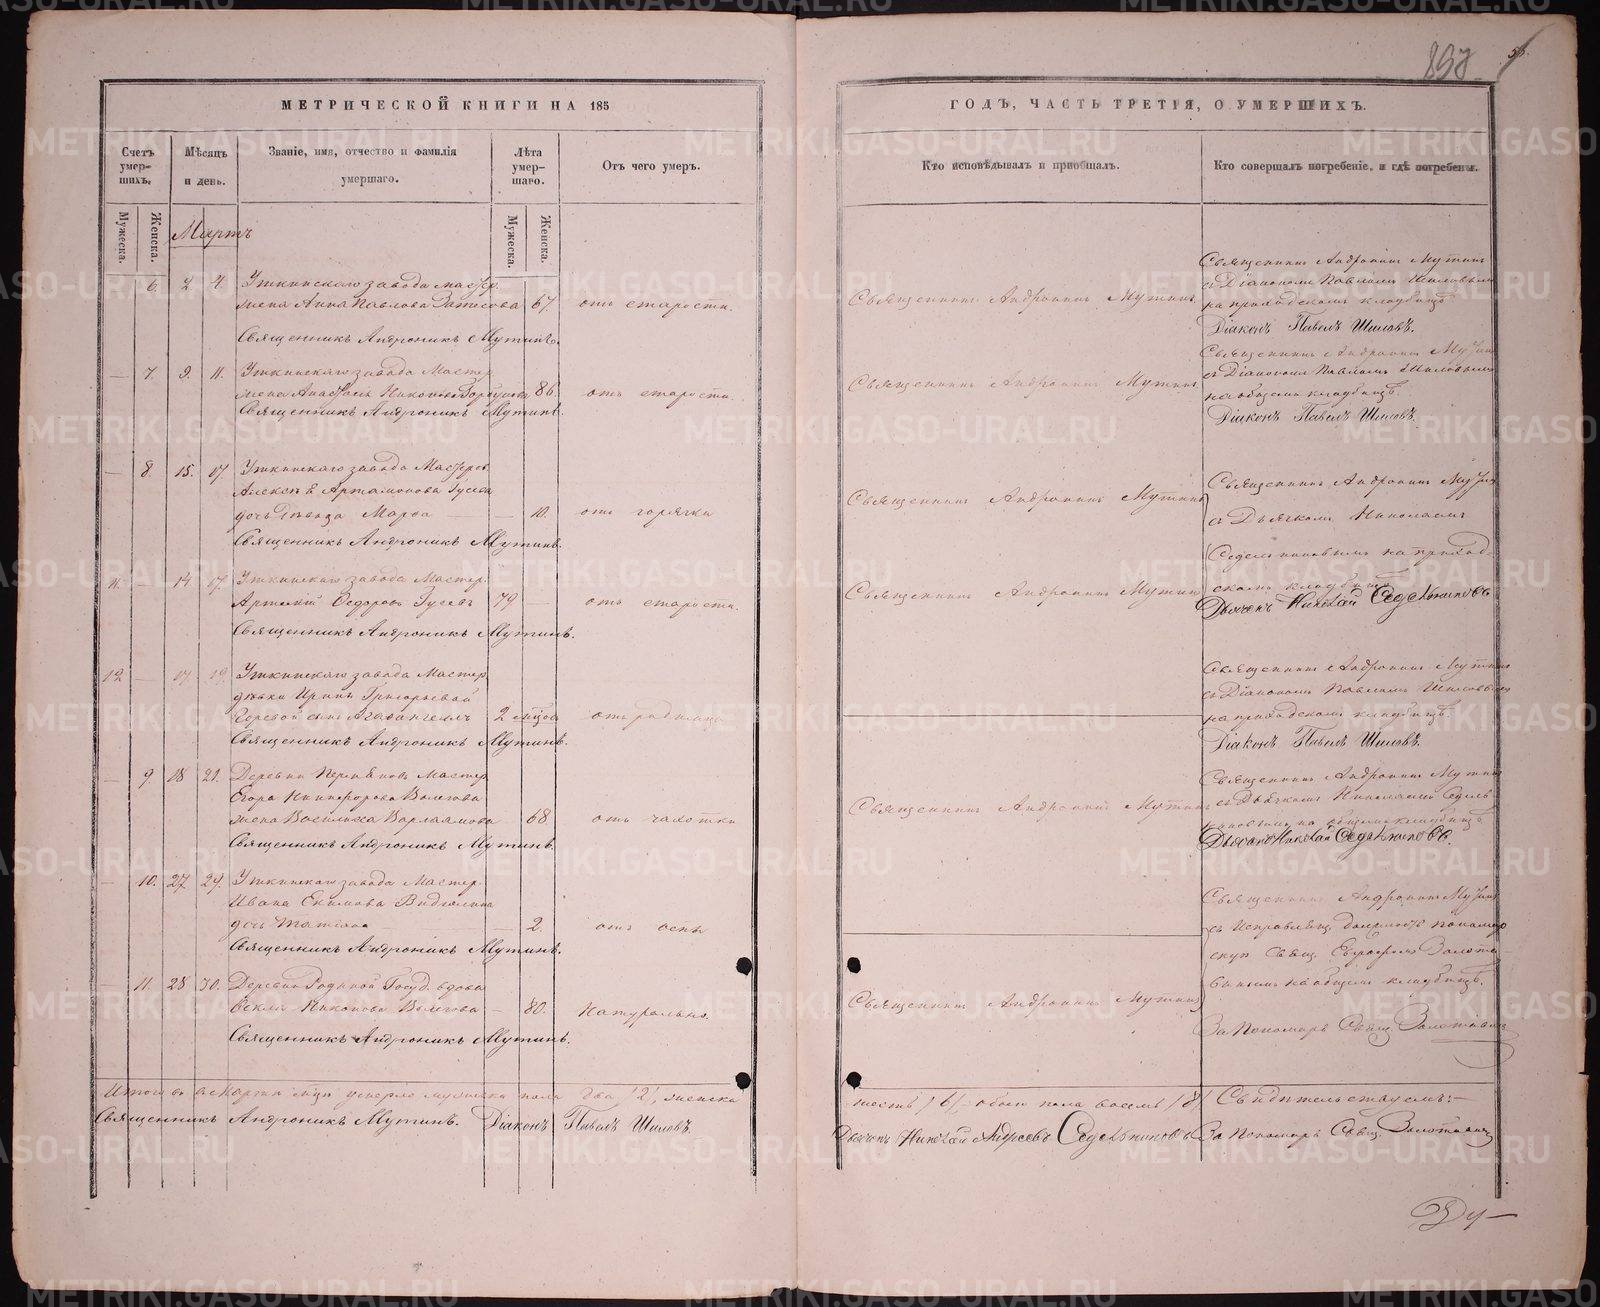 898
МЕТРИЧЕСКОЙ КНИГИ НА 185
ГОДЪ, ЧАСТЬ ТРЕТІЯ, О УМЕРШИХЪ.
Счетъ умер-шихъ.
Мѣсяцъ и день.
Званіе, имя, отчество и фамилія умершаго.
Лѣта умер-шаго.
Отъ чего умеръ.
Кто исповѣдывалъ и пріобщалъ.
Кто совершалъ погребеніе, и гдѣ погребены.
Мужеска.
Женска.
Мужеска.
Женска.
Мартъ
6 2 4. Уткинскаго завода мастер.
жена Анна Павлова 67.
отъ старости.
Священникъ Андроникъ Мутинъ
Священникъ Андроникъ Мутинъ
съ Діакономъ Павломъ Шиловымъ
на приходскомъ кладбищѣ.
Священникъ Андроникъ Мутинъ.
Діаконъ Павелъ Шиловъ.
— 7. 9. 11. Уткинскаго завода Мастер.
жена 86.
отъ старости.
Священникъ Андроникъ Мутинъ
Священникъ Андроникъ Мутинъ
съ Діакономъ Павломъ Шиловымъ
на общемъ кладбищѣ.
Священникъ Андроникъ Мутинъ.
Діаконъ Павелъ Шиловъ.
— 8. 15. 17. Уткинскаго завода Мастеров.
Артамонова Гусева
Марфа — 10.
отъ горячки
Священникъ Андроникъ Мутинъ
Священникъ Андроникъ Мутин
съ Дьячкомъ Николаемъ
Священникъ Андроникъ Мутинъ.
Седельниковымъ на приход-
скомъ кладбищѣ
11. — 14 17. Уткинскаго завода Мастер.
Артемій Ѳедоровъ Гусевъ 79 —
отъ старости.
Священникъ Андроникъ Мутин
Дьячекъ Николай Седельниковъ
Священникъ Андроникъ Мутинъ.
12 — 17 19. Уткинскаго завода Мастер.
дѣвки Ирины Григорьевой
сынъ 2 мѣсяц.
Священникъ Андроникъ Мутинъ
съ Діакономъ Павломъ Шиловымъ
на приходскомъ кладбищѣ.
Священникъ Андроникъ Мутинъ.
Діаконъ Павелъ Шиловъ.
— 9. 18 21. Деревни Мастер.
Егора Никифорова
жена Василиса Варлаамова 68
отъ чахотки
Священникъ Андроникъ Мутинъ
Священникъ Андроникъ Мутин
съ Дьячкомъ Николаемъ Седель
никовымъ на общемъ кладбищѣ
Священникъ Андроникъ Мутинъ.
Дьячекъ Николай Седельниковъ.
— 10. 27 29. Уткинскаго завода Мастер.
Ивана Екимова
дочь Татіана — 2.
отъ оспы
Священникъ Андроникъ Мутинъ
Священникъ Андроникъ Мутинъ.
— 11. 28 30. Деревни Государ. вдова
Ѳекла Никонова — 80.
Натурально.
Священникъ Андроникъ Мутинъ
на общемъ кладбищѣ.
Священникъ Андроникъ Мутинъ.
За Пономаря Свящ. Золотавинъ
Итого въ Мартѣ м-цѣ умерло мужеска пола два /2/, женска
шесть /6/, обоего пола восемь /8/ Свидѣтельствуемъ:—
Священникъ Андроникъ Мутинъ. Діаконъ Павелъ Шиловъ.
Дьячекъ Николай Андреевъ Седельниковъ За Пономаря Свящ. Золотавинъ
METRIKI.GASO-URAL.RU